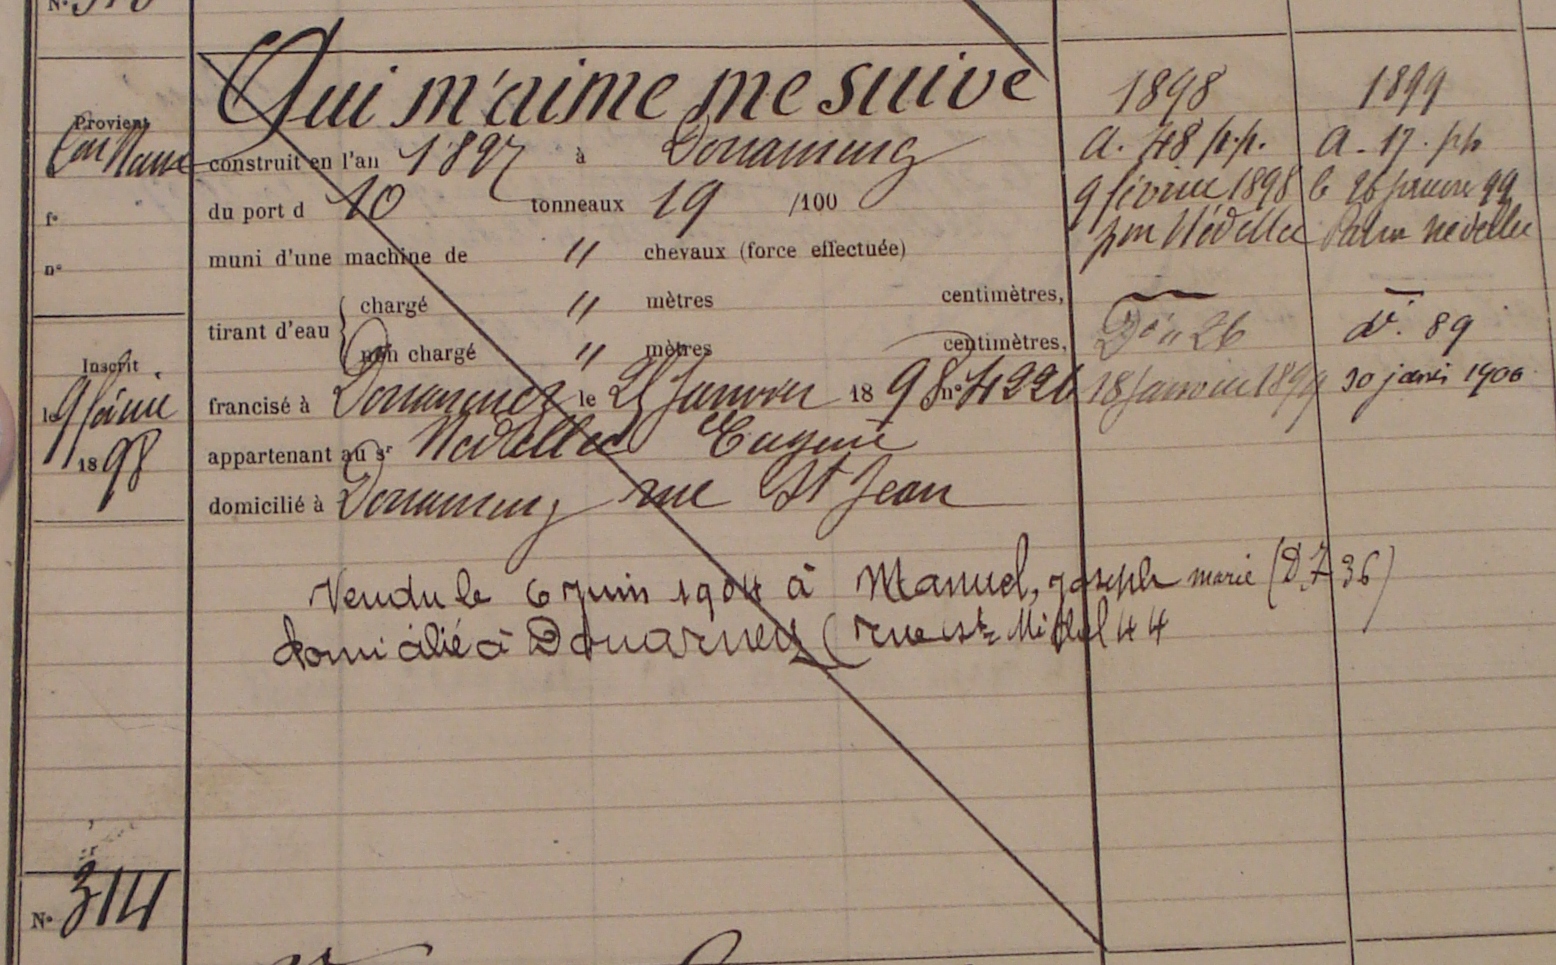 Qui m'aime me suive
Provient
construit en l'an 1897 à Douarnenez
du port d 10 tonneaux 19 /100
f°
muni d'une machine de " chevaux (force effectuée)
n°
tirant d'eau { chargé " mètres centimètres,
non chargé " mètres centimètres,
Inscrit
le 9 février
1898
francisé à Douarnenez le 25 Janvier 1898 n° 4226
appartenant au sr Nédellec Eugène
domicilié à Douarnenez rue St Jean
Vendu le 6 juin 1904 à Manuel, joseph marie (DZ 36)
domicilié à Douarnenez (rue st Michel 44
1898
a. 48 p.p.
9 février 1898
par Nédellec
Dn 26
18 Janvier 1899
1899
a. 17. pp
le 26 janvier 99
Patron Nédellec
d. 89
30 janv 1900
N° 314